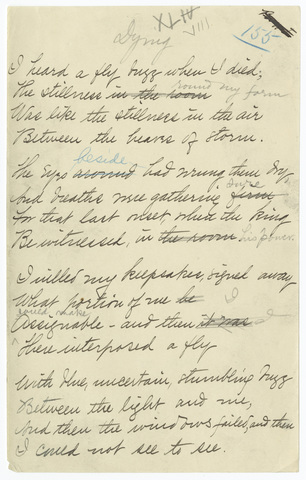 XLIV
VIII
155
Dying
I heard a fly buzz when I died;
The stillness in the room round my form
Was like the stillness in the air
Between the heaves of storm.
The eyes around beside had wrung them dry,
And breaths were gathering firm sure
For that last onset, when the king
Be witnessed, in the room his power.
I willed my keepsakes, signed away
What portion of me be I
could make
Assignable - and then it was
There interposed a fly
With blue, uncertain, stumbling buzz
Between the light and me,
And then the windows failed, and then
I could not see to see.